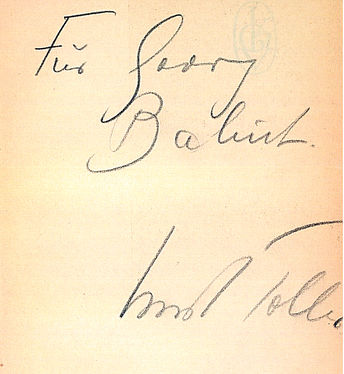 Für Georg
Balint.
Ernst Toller